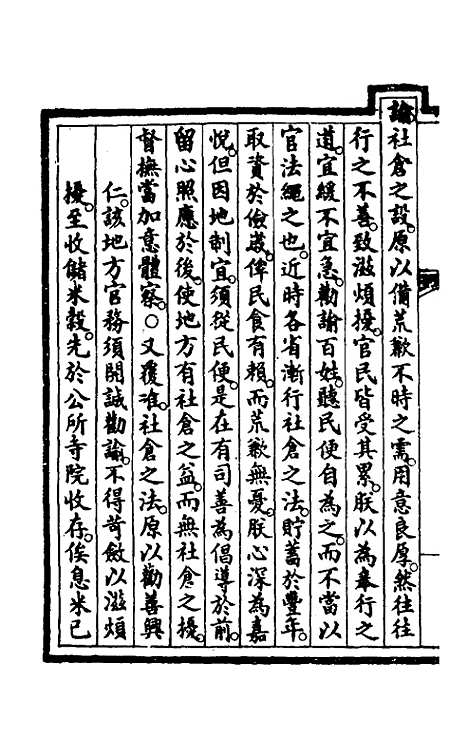 諭社倉之設。原以備荒歉不時之需。用意良厚。然往往
行之不善。致滋煩擾。官民皆受其累。朕以為奉行之
道。宜緩不宜急。勸諭百姓。聽民便自為之。而不當以
官法繩之也。近時各省漸行社倉之法。貯蓄於豐年。
取資於儉歲。俾民食有賴。而荒歉無憂。朕心深為嘉
悅。但因地制宜。須從民便。是在有司善為倡導於前。
留心照應於後。使地方有社倉之益。而無社倉之擾。
督撫當加意體察。○又覆准。社倉之法。原以勸善興
仁。該地方官務須開誠勸諭。不得苛斂以滋煩
擾。至收儲米穀。先於公所寺院收存。俟息米已